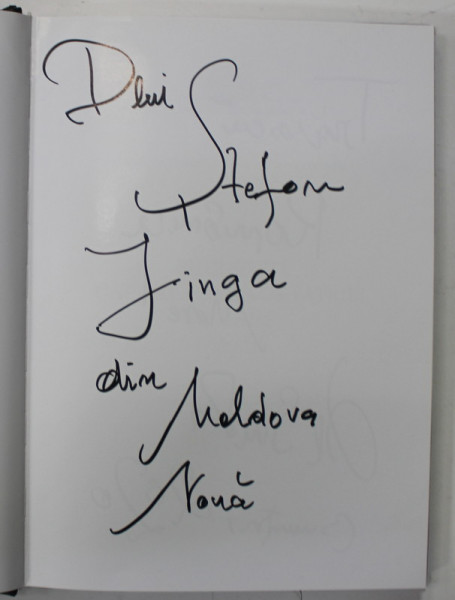 Dlui
Ștefan
Jinga
din
Moldova
Nouă